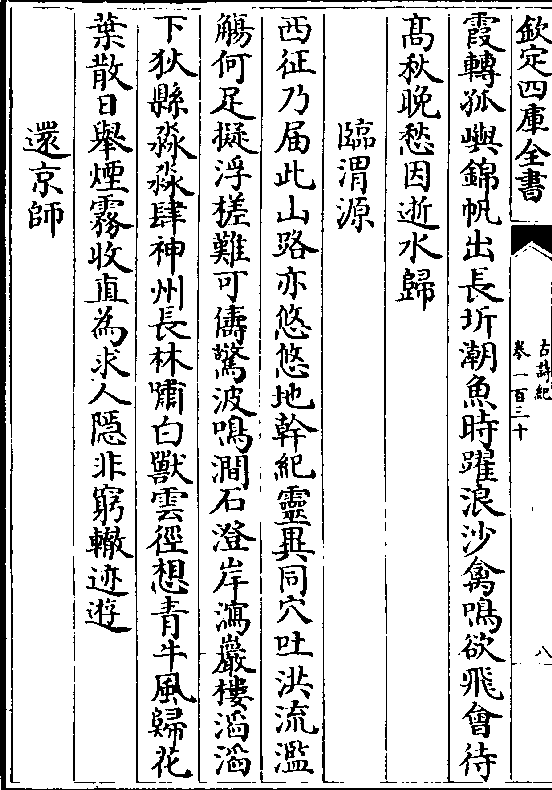 欽定四庫全書
古詩紀
卷一百三十
八
霞轉孤嶼錦帆出長圻潮魚時躍浪沙禽鳴欲飛會待
髙秋晩愁因逝水歸
臨渭源
西征乃届此山路亦悠悠地幹紀靈異同穴吐洪流濫
觴何足擬浮槎難可儔驚波鳴澗石澄岸瀉巖樓滔滔
下狄縣淼淼肆神州長林嘯白獸雲徑想青牛風歸花
葉散日舉煙霧收直為求人隠非窮轍迹遊
還京師